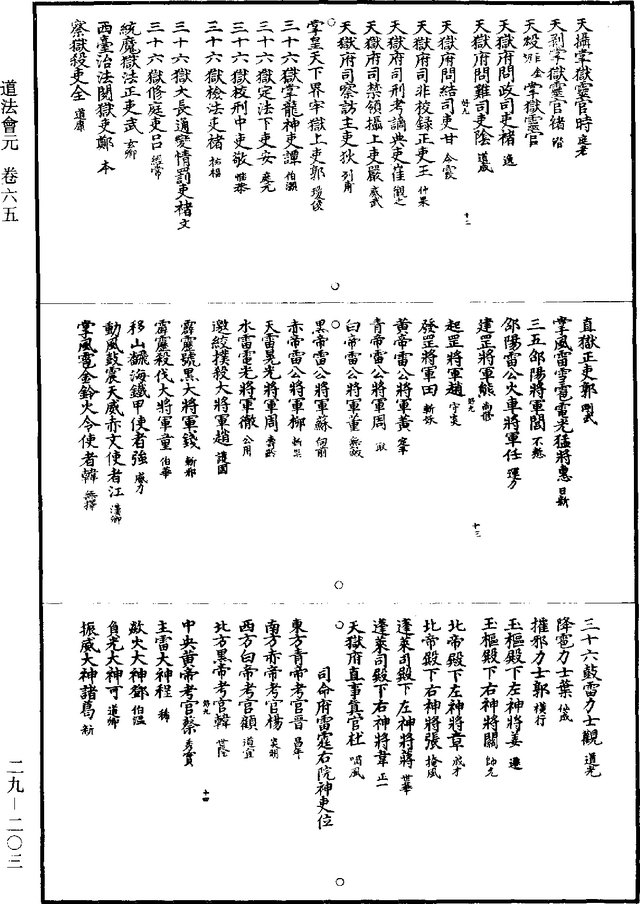 道法會元　卷六五
天攝掌獄靈官時
天剛掌獄靈官緒
天殺掌獄靈官
天獄府問政司吏褚逸
天獄府問難司吏陰道成
天獄府問結司吏甘令震
天獄府司非校錄正吏王仆果
天獄府司刑考讁典吏崔觀之
天獄府司禁領攝上吏嚴威武
天獄府司察訪主吏狄列甫
掌皇天下界牢獄上吏郭瓊俊
三十六獄掌龍神吏譚伯灝
三十六獄定法下吏安處元
三十六獄校刑中吏敬惟恭
三十六獄檢法吏禇祐福
三十六獄大長適變情罰吏禇文
三十六獄修庭吏呂經常
統魔獄法正吏武玄卿
西臺治法閱獄吏鄭本
察獄殺吏全道康
直獄正吏郭剛武
掌風雷雲電雷光猛將惠日新
三五邵陽將軍閻不愁
邵陽雷公火車將軍任運乃
建罡將軍熊尚傑
起罡將軍趙守炎
發罡將軍田斬妖
黃帝雷公將軍黃定華
青帝雷公將軍周取
白帝雷公將軍董
黑帝雷公將軍蘇向前
赤帝雷公將軍柳
天雷晃光將軍周青
水雷電光將軍徹公用
邀紋撲殺大將軍趙護國
霹靂號黑大將軍錢斬邪
霹靂殺伐大將軍童伯華
移山飜海鐵甲使者強威力
動風鼓震天威赤文使者江漢卿
掌風雹金鈴火令使者韓無擇
三十六鼓雷力士觀道光
降雹力士葉伏成
摧邪力士郭橫行
玉樞殿下左神將姜
玉樞殿下右神將關師允
北帝殿下左神將章成才
北帝殿下右神將張掩風
蓬萊司殿下左神將蔣世華
蓬萊司殿下右神將韋正一
天獄府直事眞官杜嘯風
司命府雷霆右院神吏位
東方青帝考官晉昌年
南方赤帝考官楊炎明
西方白帝考官顏道宜
北方黑帝考官韓世隆
中央黃帝考官蔡秀實
主雷大神程務
歘火大神鄧伯溫
負光大神可道卿
振威大神諸葛新
二九—二〇三